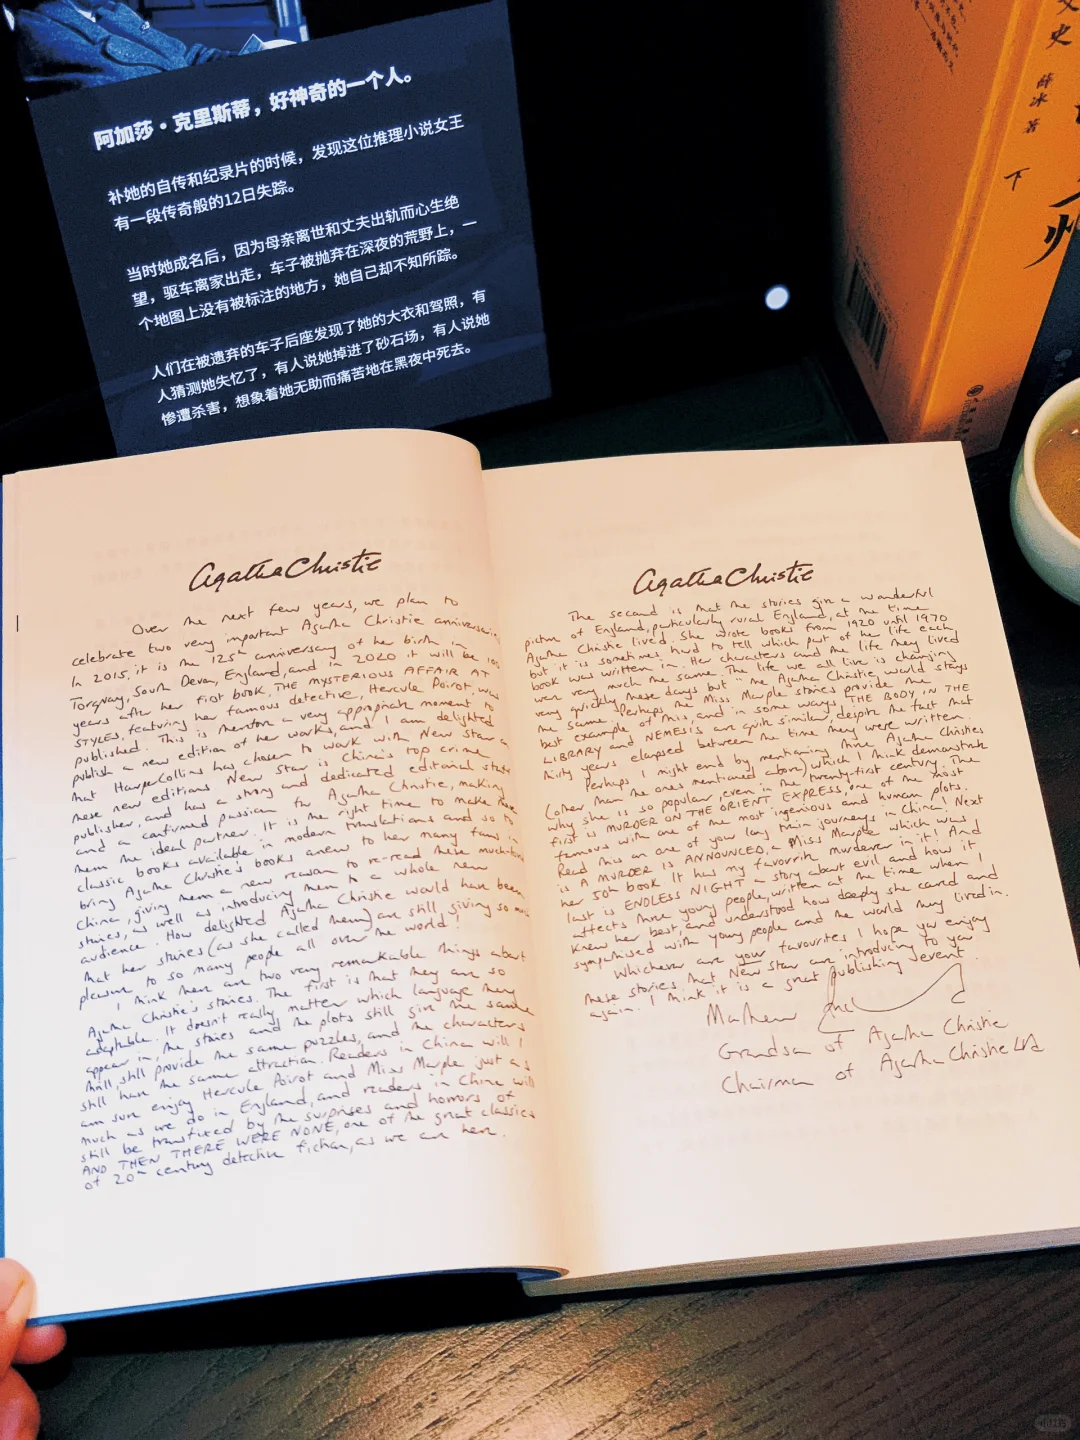 阿加莎·克里斯蒂，好神奇的一个人。
补她的自传和纪录片的时候，发现这位推理小说女王
有一段传奇般的12日失踪。
当时她成名后，因为母亲离世和丈夫出轨而心生绝
望，驱车离家出走，车子被抛弃在深夜的荒野上，一
个地图上没有被标注的地方，她自己却不知所踪。
人们在被遗弃的车子后座发现了她的大衣和驾照，有
人猜测她失忆了，有人说她掉进了砂石场，有人说她
惨遭杀害，想象着她无助而痛苦地在黑夜中死去。
史
薛冰 著
下
Agatha Christie
Over the next few years, we plan to
celebrate two very important Agatha Christie
In 2015, it is the 125th anniversary of her birth in
Torquay, South Devon, England, and in 2020 it will be 100
years after her first book, THE MYSTERIOUS AFFAIR AT
STYLES, featuring her famous detective, Hercule Poirot, was
published. This is therefore a very appropriate moment to
publish a new edition of her works, and I am delighted
that HarperCollins has chosen to work with New Star on
these new editions. New Star is China's top crime
publisher, and has a strong and dedicated editorial staff
and a confirmed passion for Agatha Christie, making
them the ideal partner. It is the right time to make these
classic books available in modern translations and so to
bring Agatha Christie's books anew to her many fans in
China, giving them a new reason to re-read these much-loved
stories, as well as introducing them to a whole new
audience. How delighted Agatha Christie would have been
that her stories (as she called them) are still giving so much
pleasure to so many people all over the world!
I think there are two very remarkable things about
Agatha Christie's stories. The first is that they are so
adaptable. It doesn't really matter which language they
appear in, the stories and the plots still give the same
thrill, still provide the same puzzles, and the characters
still have the same attraction. Readers in China will I
am sure enjoy Hercule Poirot and Miss Marple just as
much as we do in England, and readers in China will
still be transfixed by the surprises and horrors of
AND THEN THERE WERE NONE, one of the great classics
of 20th century detective fiction, as we are here.
Agatha Christie
The second is that the stories give a wonderful
picture of England, particularly rural England, at the time
Agatha Christie lived. She wrote books from 1920 until 1970
but it is sometimes hard to tell which part of her life each
book was written in. Her characters and the life they lived
were very much the same. The life we all live is changing
very quickly these days but in the Agatha Christie world stays
the same. Perhaps the Miss Marple stories provide the
best example of this, and in some ways THE BODY IN THE
LIBRARY and NEMESIS are quite similar, despite the fact that
thirty years elapsed between the time they were written.
Perhaps I might end by mentioning three Agatha Christies
(other than the ones mentioned above) which I think demonstrate
why she is so popular, even in the twenty-first century. The
first is MURDER ON THE ORIENT EXPRESS, one of the most
famous with one of the most ingenious and human plots.
Read this on one of your long train journeys in China! Next
is A MURDER IS ANNOUNCED, a Miss Marple which was
her 50th book. It has my favourite murderer in it! And
last is ENDLESS NIGHT a story about evil and how it
affects three young people, written at the time when I
knew her best, and understood how deeply she cared and
sympathised with young people and the world they lived in.
Whichever are your favourites I hope you enjoy
these stories that New Star are introducing to you
again. I think it is a great publishing event.
Mathew
Grandson of Agatha Christie
Chairman of Agatha Christie Ltd
小红书